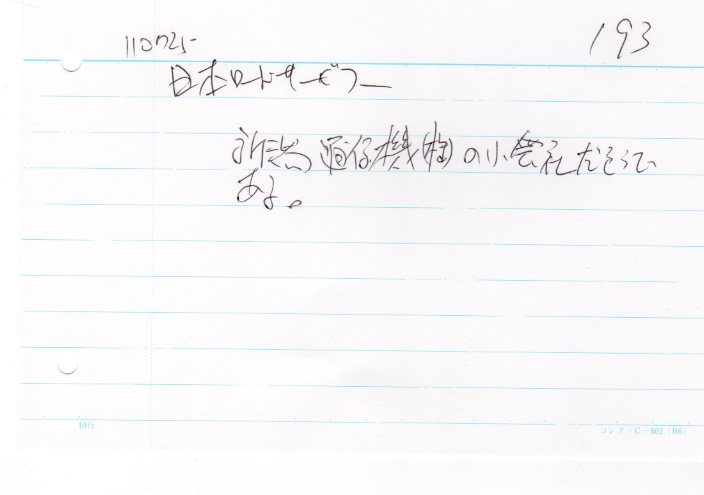 193
110725
日本ロードサービス
通信機(株)の小会社だそうで
ある。
10行
コレクト C-602 (B6)